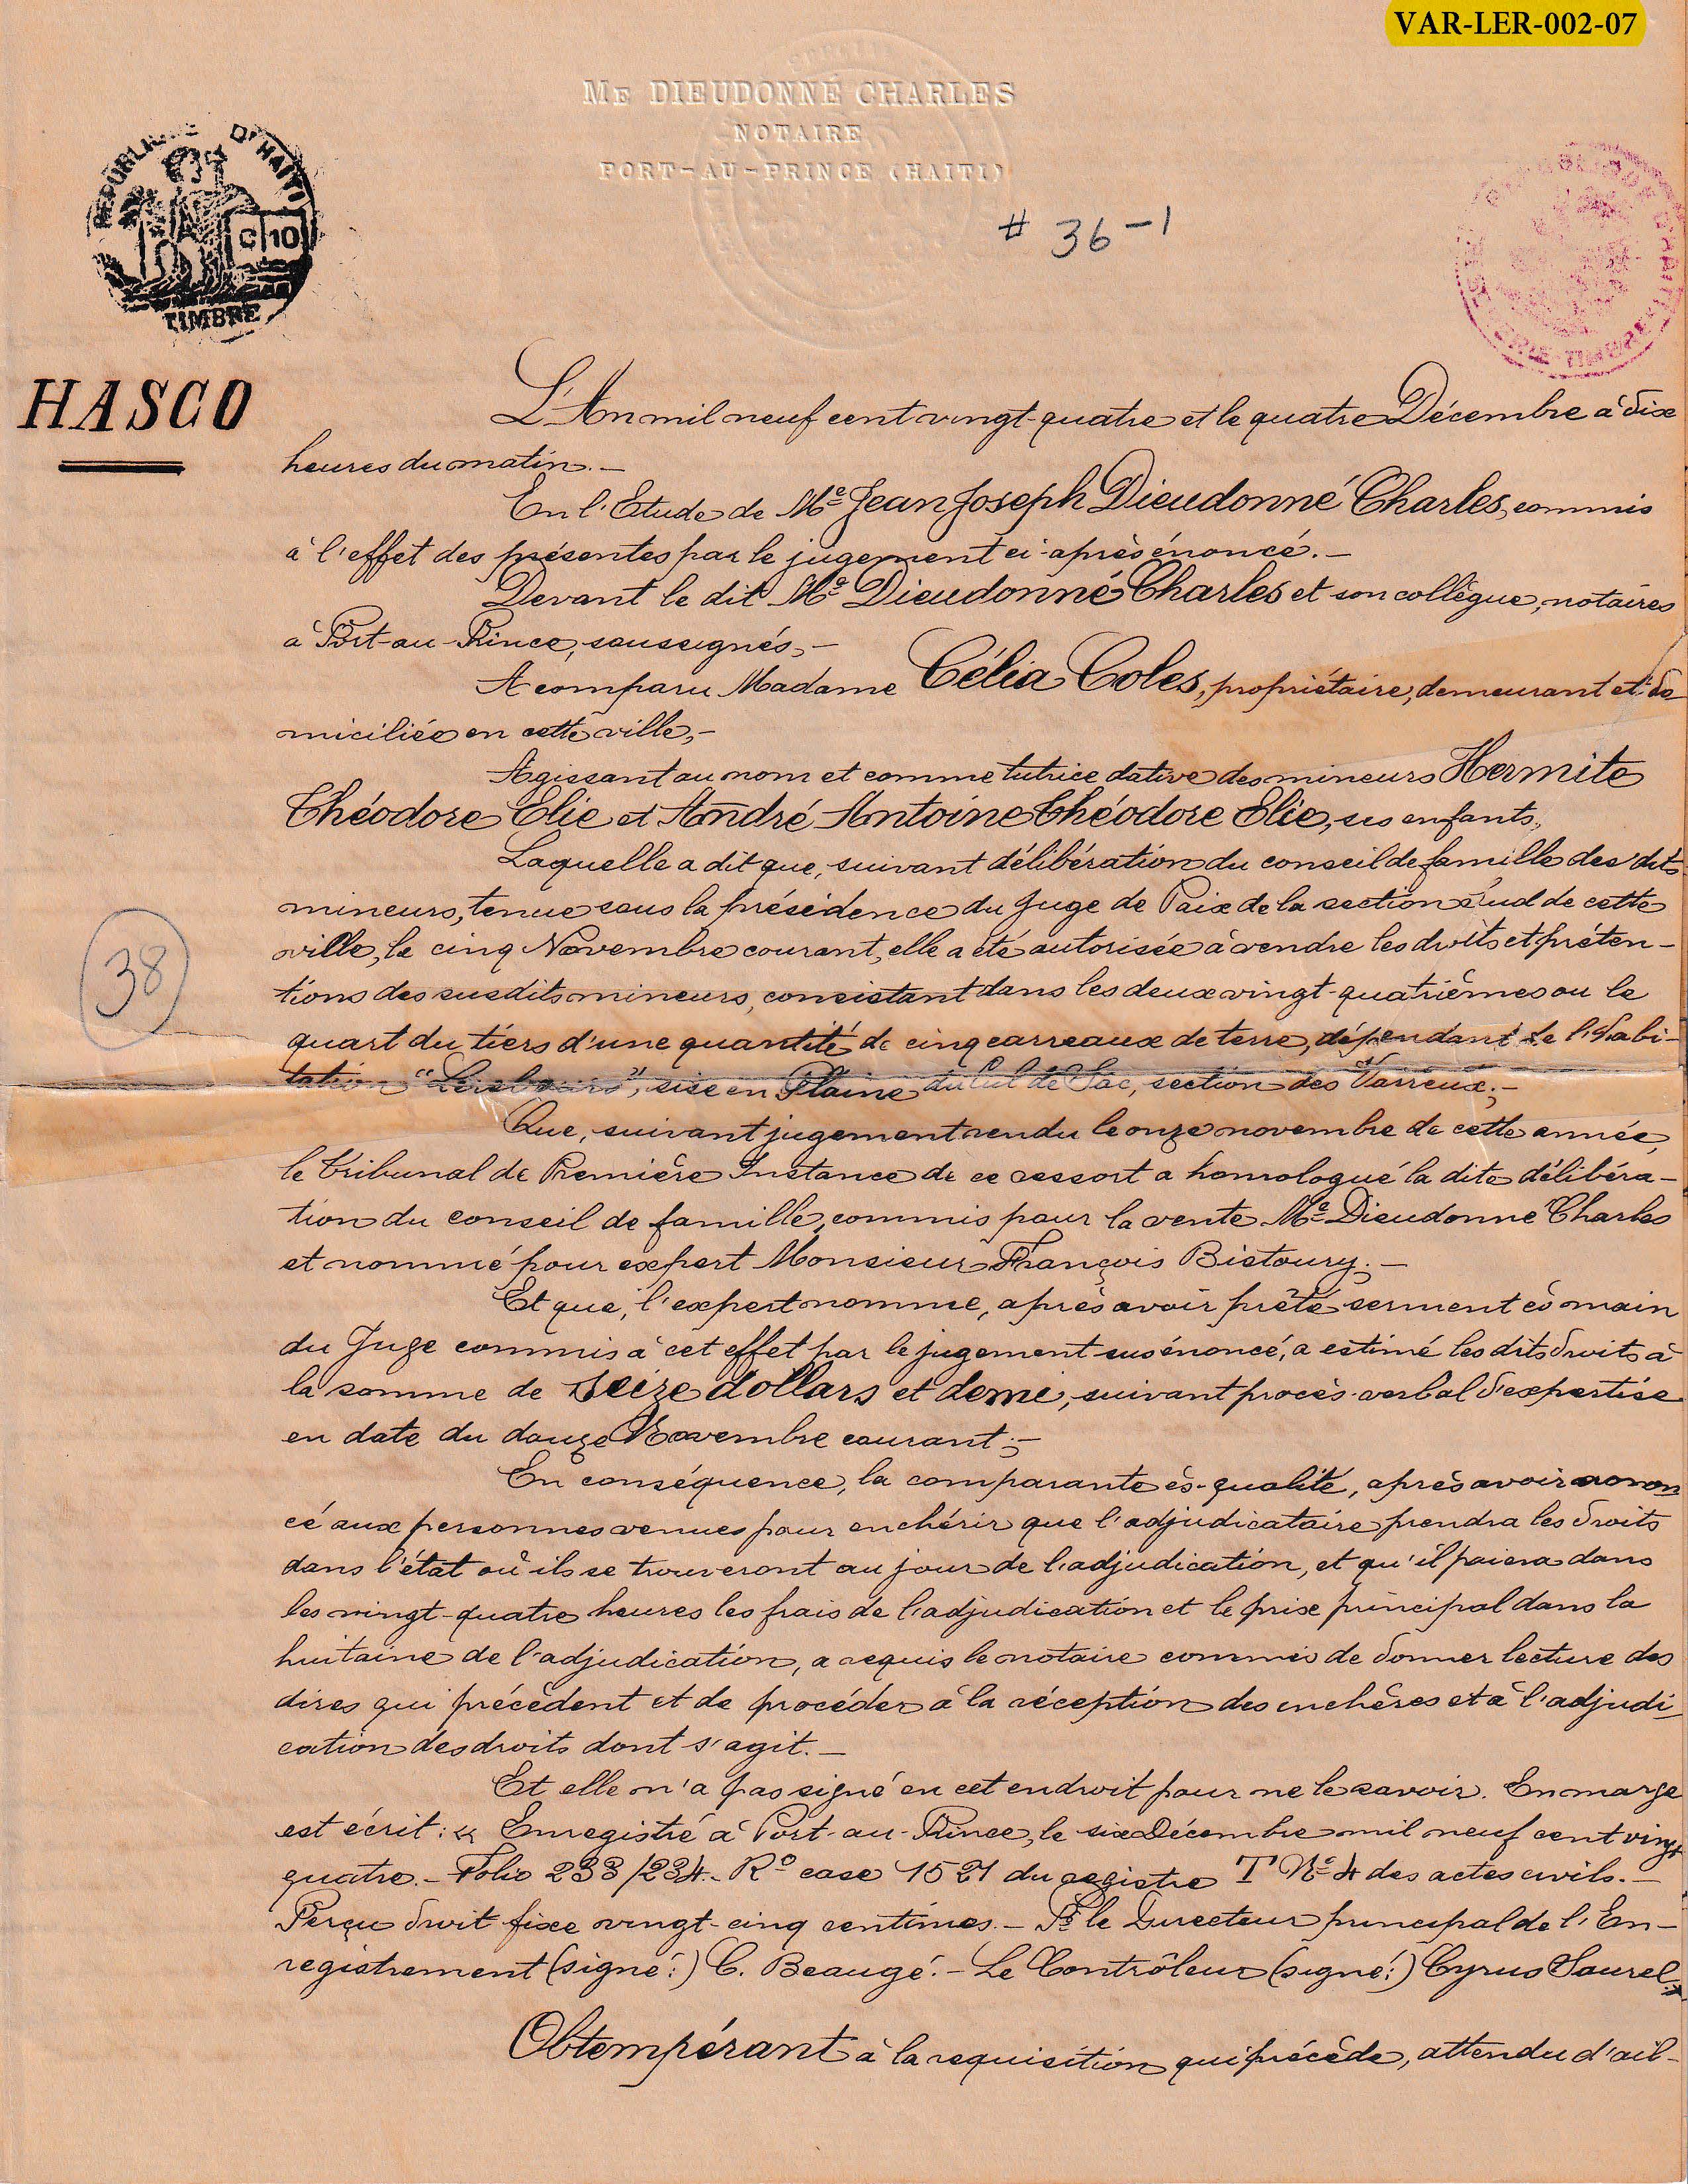 VAR-LER-002-07
ME DIEUDONNÉ CHARLES
NOTAIRE
PORT-AU-PRINCE (HAITI)
# 36-1
REPUBLIQUE D'HAITI
C 10
TIMBRE
HASCO
L'An mil neuf cent vingt-quatre et le quatre Décembre à dix
heures du matin.—
En l'Etude de Me Jean Joseph Dieudonné Charles, commis
à l'effet des présentes par le jugement ci-après énoncé.—
Devant le dit Me Dieudonné Charles et son collègue, notaires
à Port-au-Prince, soussignés,—
A comparu Madame Célia Coles, propriétaire, demeurant et do
miciliée en cette ville,—
Agissant au nom et comme tutrice dative des mineurs Hermite
Théodore Elie et André Antoine Théodore Elie, ses enfants,
Laquelle a dit que, suivant délibération du conseil de famille des dits
mineurs, tenue sous la présidence du Juge de Paix de la section sud de cette
ville, le cinq Novembre courant, elle a été autorisée à vendre les droits et préten-
tions des susdits mineurs, consistant dans les deux vingt-quatrièmes ou le
38
quart du tiers d'une quantité de cinq carreaux de terre, dépendant de l'Habi-
tation "Lerebours", sise en Plaine du Cul de Sac, section des Varreux;—
Que, suivant jugement rendu le onze novembre de cette année,
le Tribunal de Première Instance de ce ressort a homologué la dite délibéra-
tion du conseil de famille, commis pour la vente Me Dieudonné Charles
et nommé pour expert Monsieur François Bistoury;—
Et que, l'expert nommé, après avoir prêté serment ès main
du Juge commis à cet effet par le jugement susénoncé, a estimé les dits droits à
la somme de seize dollars et demi, suivant procès-verbal d'expertise
en date du douze Novembre courant;—
En conséquence, la comparante ès-qualité, après avoir annon
cé aux personnes venues pour enchérir que l'adjudicataire prendra les droits
dans l'état où ils se trouveront au jour de l'adjudication, et qu'il paiera dans
les vingt-quatre heures les frais de l'adjudication et le prix principal dans la
huitaine de l'adjudication, a requis le notaire commis de donner lecture des
dires qui précèdent et de procéder à la réception des enchères et à l'adjudi
cation des droits dont s'agit.—
Et elle n'a pas signé en cet endroit pour ne le savoir. En marge
est écrit: « Enregistré à Port-au-Prince, le six Décembre mil neuf cent vingt
quatre.- Folio 233/234.- Ro case 1521 du registre T No 4 des actes civils.—
Perçu droit fixe vingt-cinq centimes.— Pr le Directeur principal de l'En-
registrement (signé:) C. Beaugé.- Le Contrôleur (signé:) Cyrus Saurel.»
Obtempérant à la requisition qui précède, attendu d'ail-